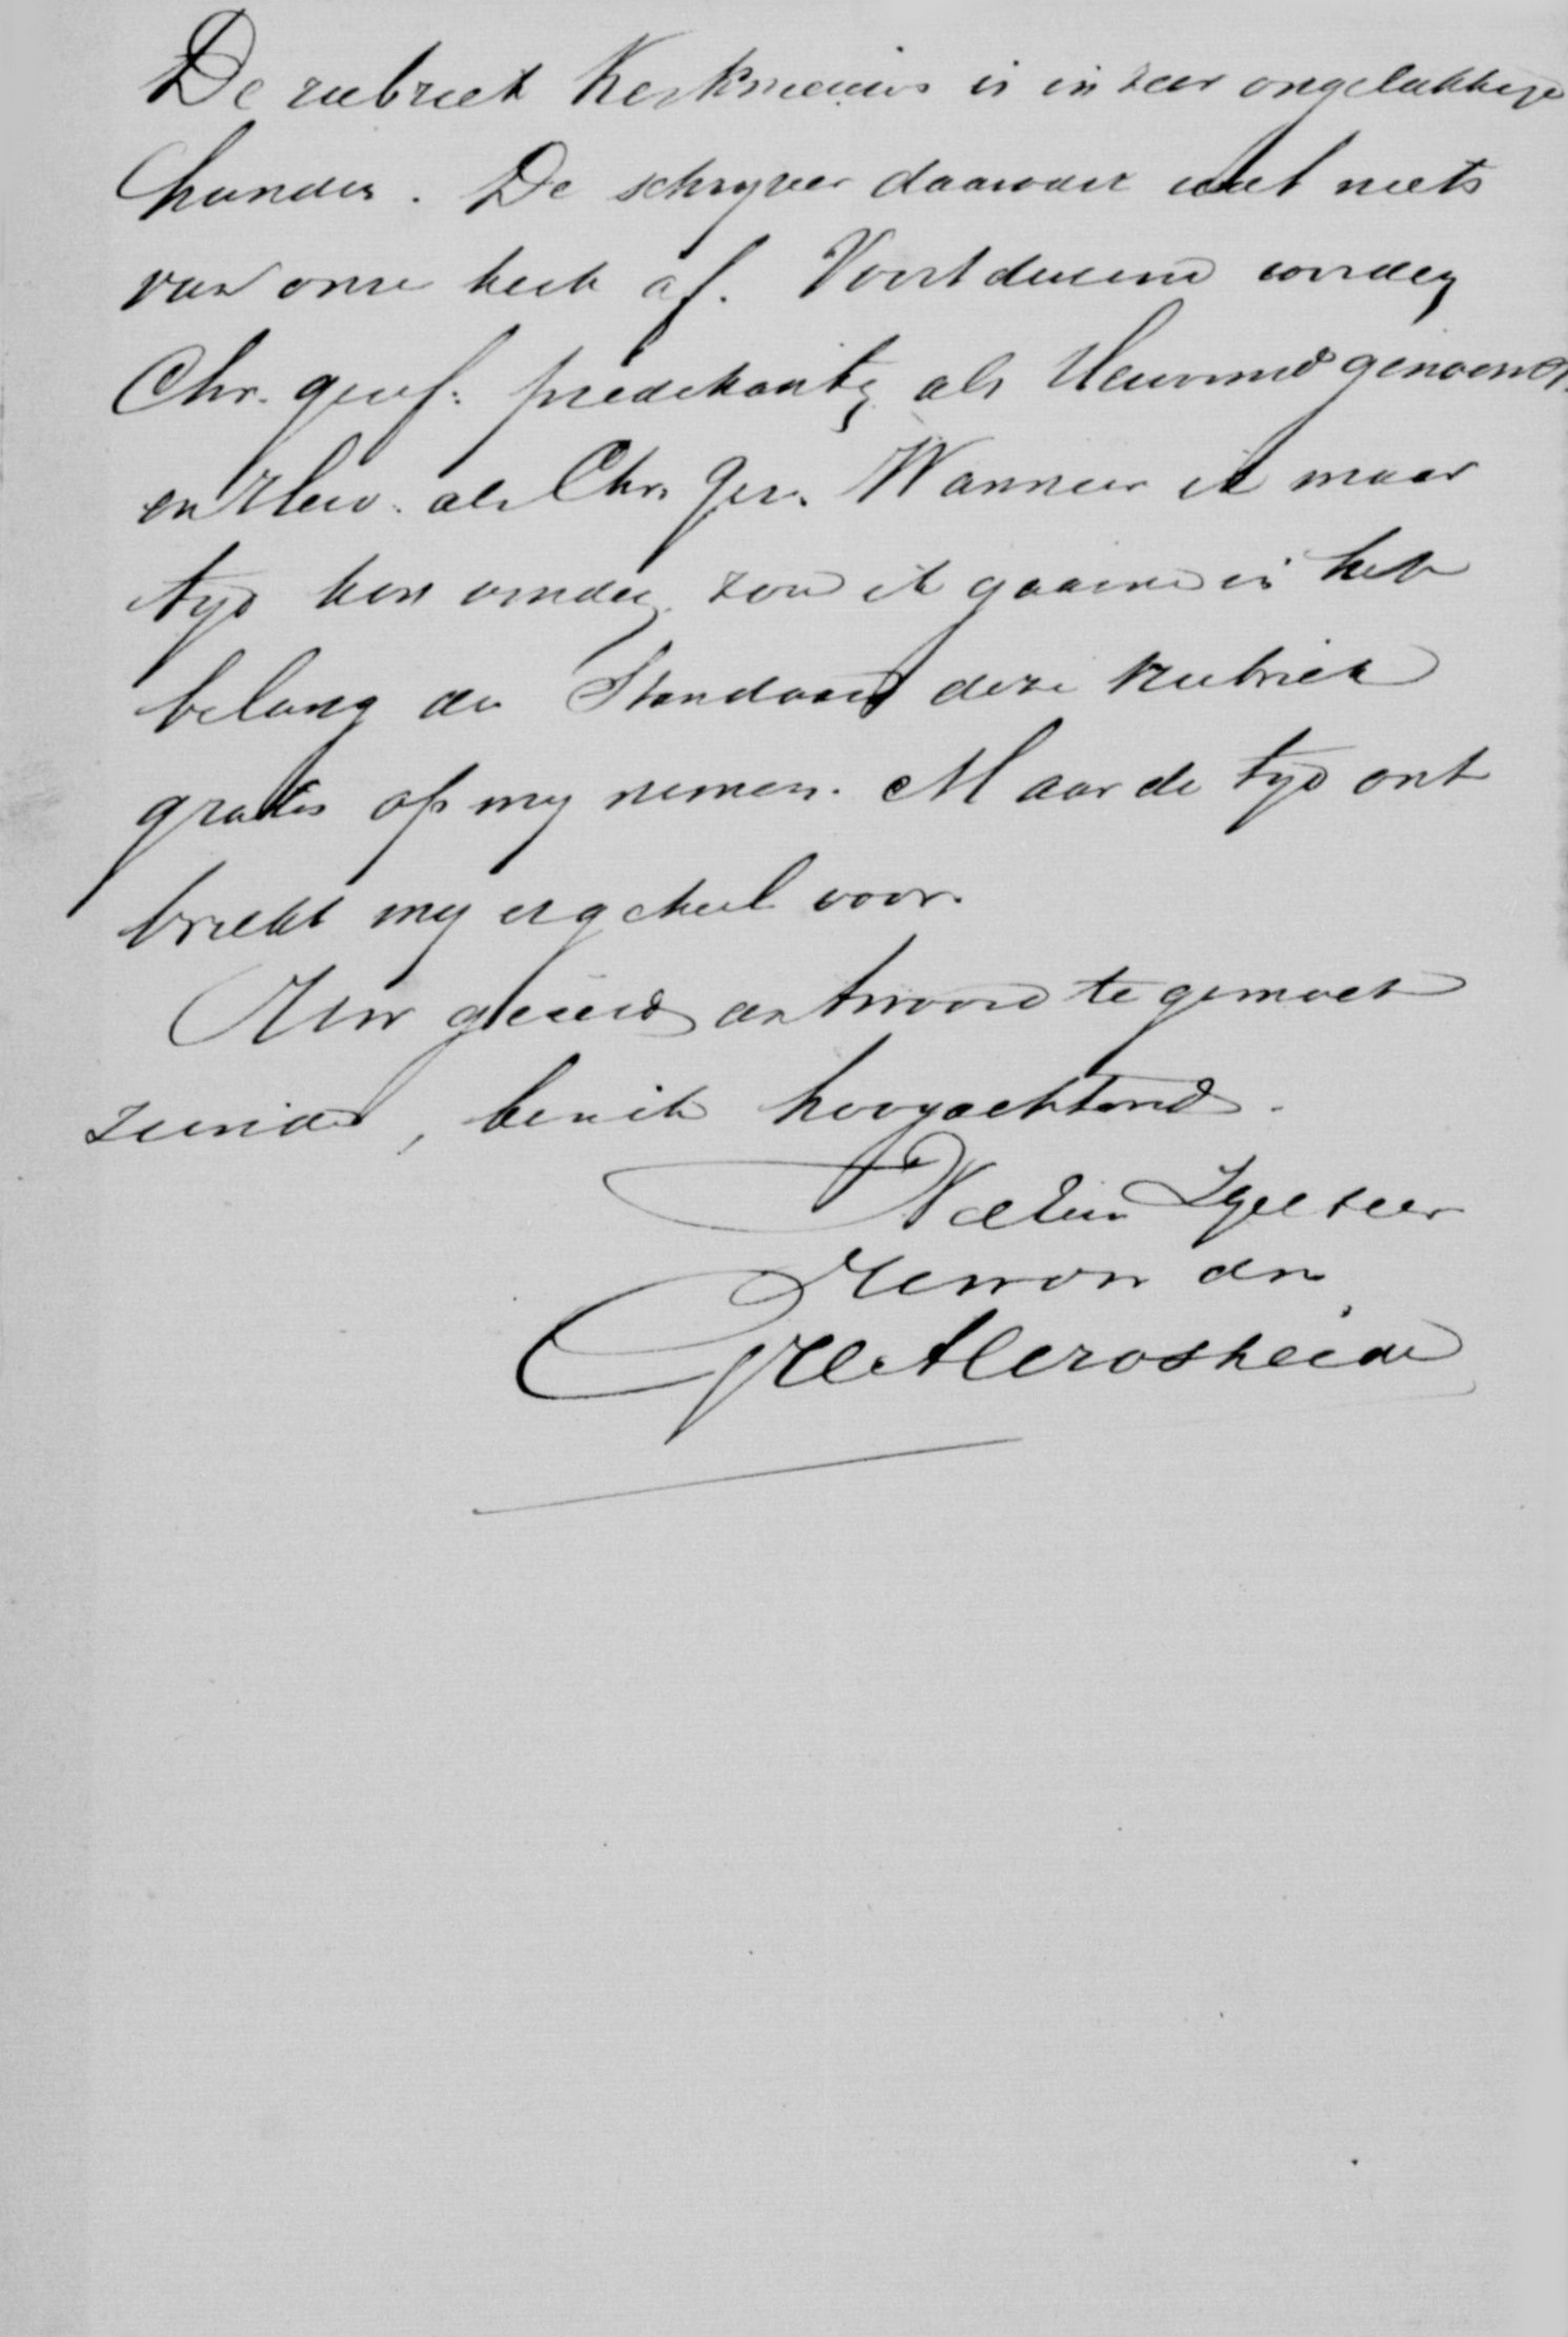 De rubriek Kerknieuws is in zeer ongelukkige
handen. De schrijver daarvan weet niets
van onze kerk af. Voortdurend worden
Chr. geref. predikanten als Hervormd genoemd
en Herv. als Chr. Ger. Wanneer ik maar
tijd kon vinden, zou ik gaarne in het
belang der Standaard deze rubriek
gratis op mij nemen. Maar de tijd ont
breekt mij er geheel voor.
Uw geëerd antwoord tegemoet
ziende, ben ik hoogachtend.
WelEdelZeer
Uw dn